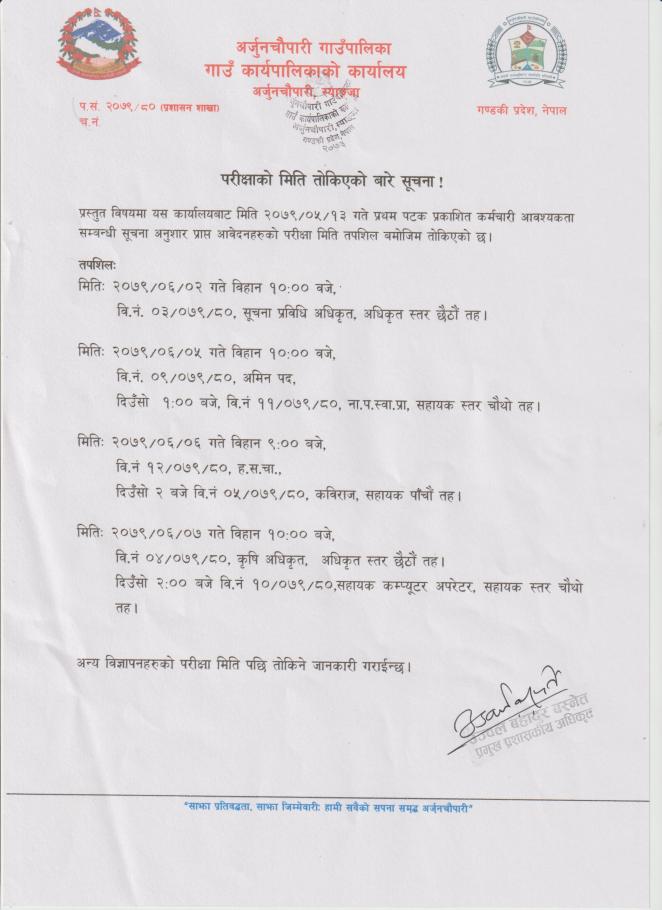 अर्जुनचौपारी गाउँपालिका
गाउँ कार्यपालिकाको कार्यालय
अर्जुनचौपारी, स्याङ्जा
प.सं. २०७९/८० (प्रशासन शाखा)
च.नं.
गण्डकी प्रदेश, नेपाल
गाउँ कार्यपालिकाको
गण्डकी प्रदेश, नेपाल
२०७३
परीक्षाको मिति तोकिएको बारे सूचना !
प्रस्तुत विषयमा यस कार्यालयबाट मिति २०७९/०५/१३ गते प्रथम पटक प्रकाशित कर्मचारी आवश्यकता
सम्बन्धी सूचना अनुशार प्राप्त आवेदनहरुको परीक्षा मिति तपशिल बमोजिम तोकिएको छ।
तपशिलः
मितिः २०७९/०६/०२ गते विहान १०:०० वजे,
वि.नं. ०३/०७९/८०, सूचना प्रविधि अधिकृत, अधिकृत स्तर छैठौं तह।
मितिः २०७९/०६/०५ गते विहान १०:०० वजे,
वि.नं. ०९/०७९/८०, अमिन पद,
दिउँसो १:०० वजे, वि.नं ११/०७९/८०, ना.प.स्वा.प्रा, सहायक स्तर चौथो तह।
मितिः २०७९/०६/०६ गते विहान ९:०० वजे,
वि.नं १२/०७९/८०, ह.स.चा.,
दिउँसो २ वजे वि.नं ०५/०७९/८०, कविराज, सहायक पाँचौं तह।
मितिः २०७९/०६/०७ गते विहान १०:०० वजे,
वि.नं ०४/०७९/८०, कृषि अधिकृत, अधिकृत स्तर छैठौं तह।
दिउँसो २:०० वजे वि.नं १०/०७९/८०,सहायक कम्प्यूटर अपरेटर, सहायक स्तर चौथो
तह।
अन्य विज्ञापनहरुको परीक्षा मिति पछि तोकिने जानकारी गराईन्छ।
बहादुर वस्नेत
प्रमुख प्रशासकीय अधिकृत
"साझा प्रतिबद्धता, साझा जिम्मेवारी: हामी सबैको सपना समृद्ध अर्जुनचौपारी"